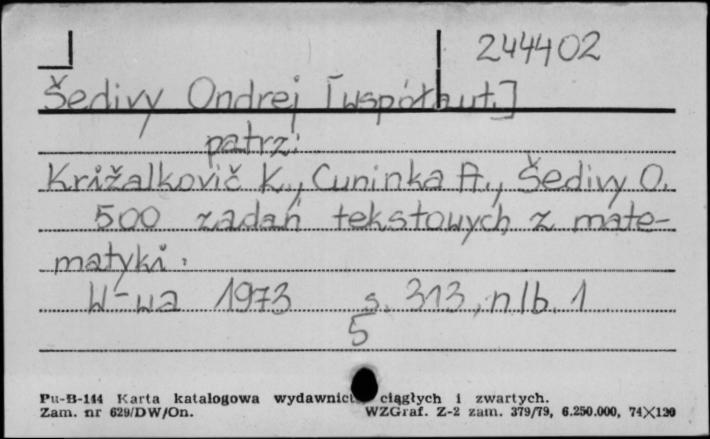 244402
Šedivy Ondrej [współaut.]
patrz:
Križalkovič K., Cuninka A., Šedivy O.
500 zadań tekstowych z mate-
matyki.
W-wa 1973 s. 313, nlb. 1
5
Pu-B-144 Karta katalogowa wydawnict ciągłych i zwartych.
Zam. nr 629/DW/On. WZGraf. Z-2 zam. 379/79, 6.250.000, 74X120